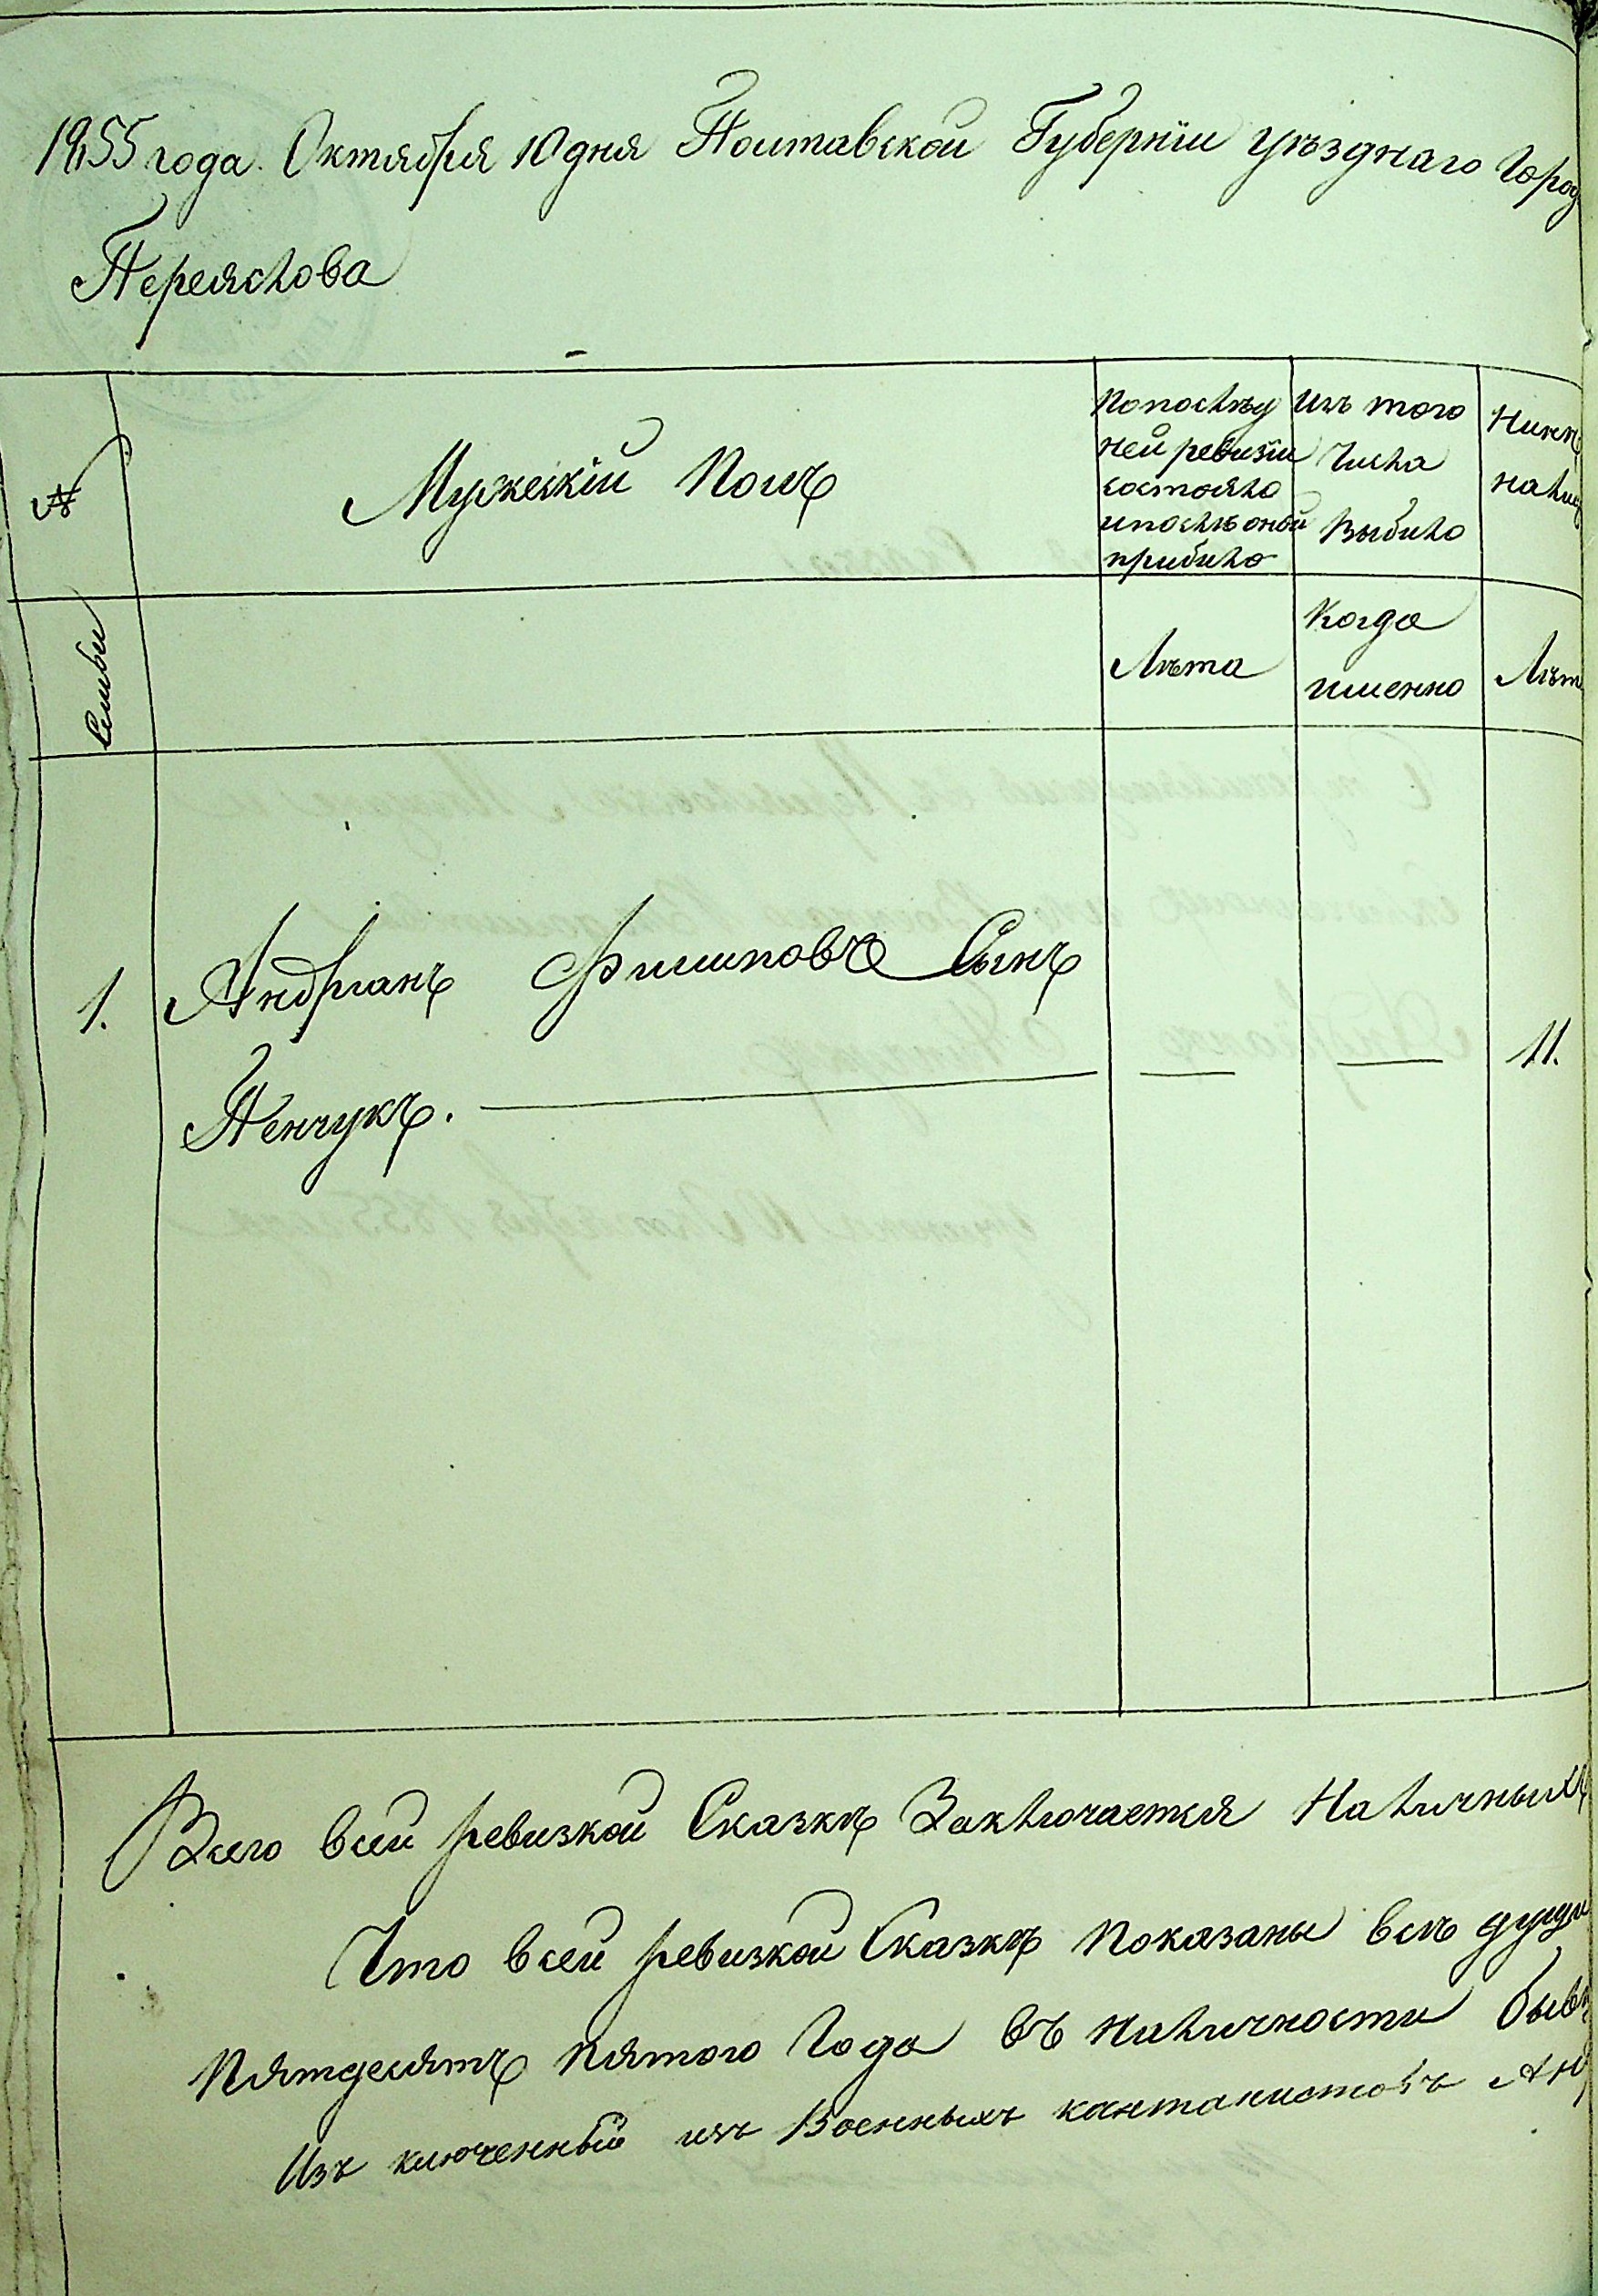 1855 года. Октября 10 дня Полтавской Губернїи уѣзднаго Город
Переяслова
№
Мужескїй Полъ
Попослѣд
ней ревизїи
состояло
ипослѣ оной
прибило
Изъ того
Числа
Выбило
Нынѣ
налиц
Семьи
Лѣта
Когда
именно
Лѣт
1. Андрианъ Филиповъ Сынъ
Пенчукъ. — — — 11.
Всего всей ревизкой Сказкѣ Заключается Наличныхъ
Что всей ревизкой Сказкѣ показаны всѣ души
пятдесятъ пятого Года въ наличности бывш
Изъ ключенный изъ Военныхъ кантанистовъ Анд